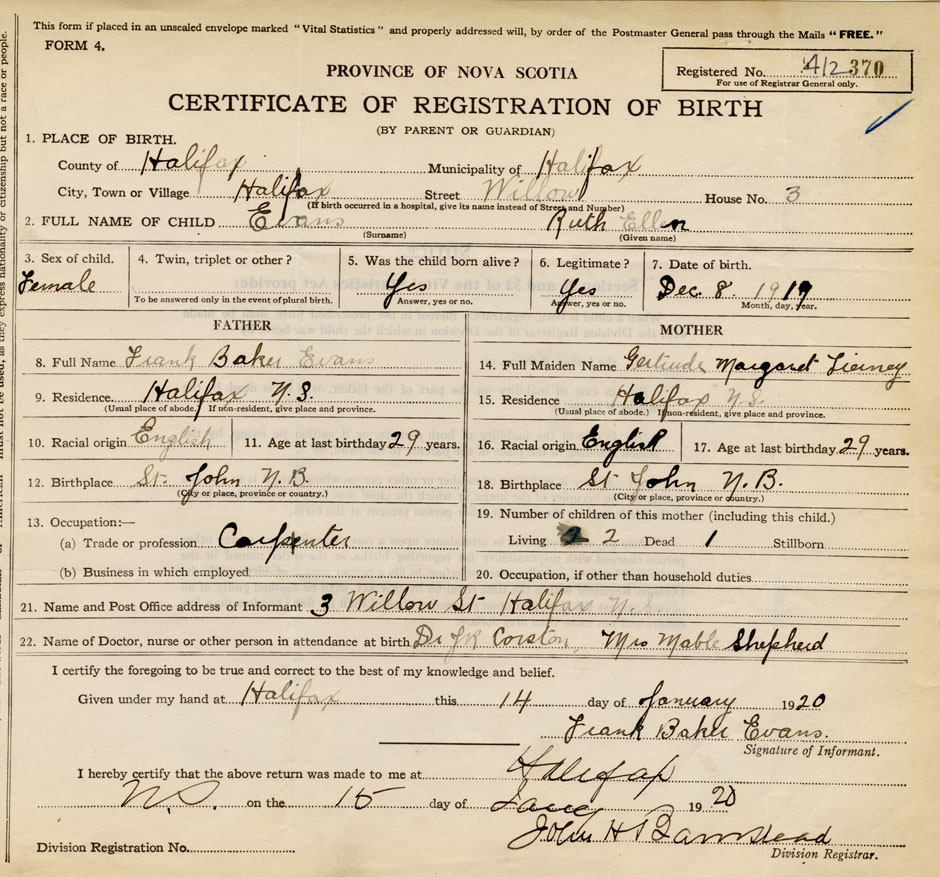 This form if placed in an unsealed envelope marked "Vital Statistics" and properly addressed will, by order of the Postmaster General pass through the Mails "FREE."
FORM 4.
Registered No. 412370
For use of Registrar General only.
PROVINCE OF NOVA SCOTIA
CERTIFICATE OF REGISTRATION OF BIRTH
(BY PARENT OR GUARDIAN)
1. PLACE OF BIRTH.
County of Halifax Municipality of Halifax
City, Town or Village Halifax Street Willow House No. 3
(If birth occurred in a hospital, give its name instead of Street and Number)
2. FULL NAME OF CHILD Evans Ruth Ellen
(Surname) (Given name)
3. Sex of child. 4. Twin, triplet or other? 5. Was the child born alive? 6. Legitimate? 7. Date of birth.
Female Yes Yes Dec. 8. 1919
To be answered only in the event of plural birth. Answer, yes or no. Answer, yes or no. Month, day, year.
FATHER MOTHER
8. Full Name Frank Baker Evans 14. Full Maiden Name Gertrude Margaret Tierney
9. Residence. Halifax N.S. 15. Residence Halifax N.S.
(Usual place of abode.) If non-resident, give place and province. (Usual place of abode.) If non-resident, give place and province.
10. Racial origin English 11. Age at last birthday 29 years. 16. Racial origin English 17. Age at last birthday 29 years.
12. Birthplace St. John N.B. 18. Birthplace St John N.B.
(City or place, province or country.) (City or place, province or country.)
13. Occupation:— 19. Number of children of this mother (including this child.)
(a) Trade or profession Carpenter Living 2 Dead 1 Stillborn
(b) Business in which employed 20. Occupation, if other than household duties
21. Name and Post Office address of Informant 3 Willow St Halifax N.S.
22. Name of Doctor, nurse or other person in attendance at birth Dr JR Corston, Mrs Mable Shepherd
I certify the foregoing to be true and correct to the best of my knowledge and belief.
Given under my hand at Halifax this 14 day of January 1920
Frank Baker Evans.
Signature of Informant.
I hereby certify that the above return was made to me at Halifax
N.S. on the 15 day of 1920
John H Barnstead
Division Registration No. Division Registrar.